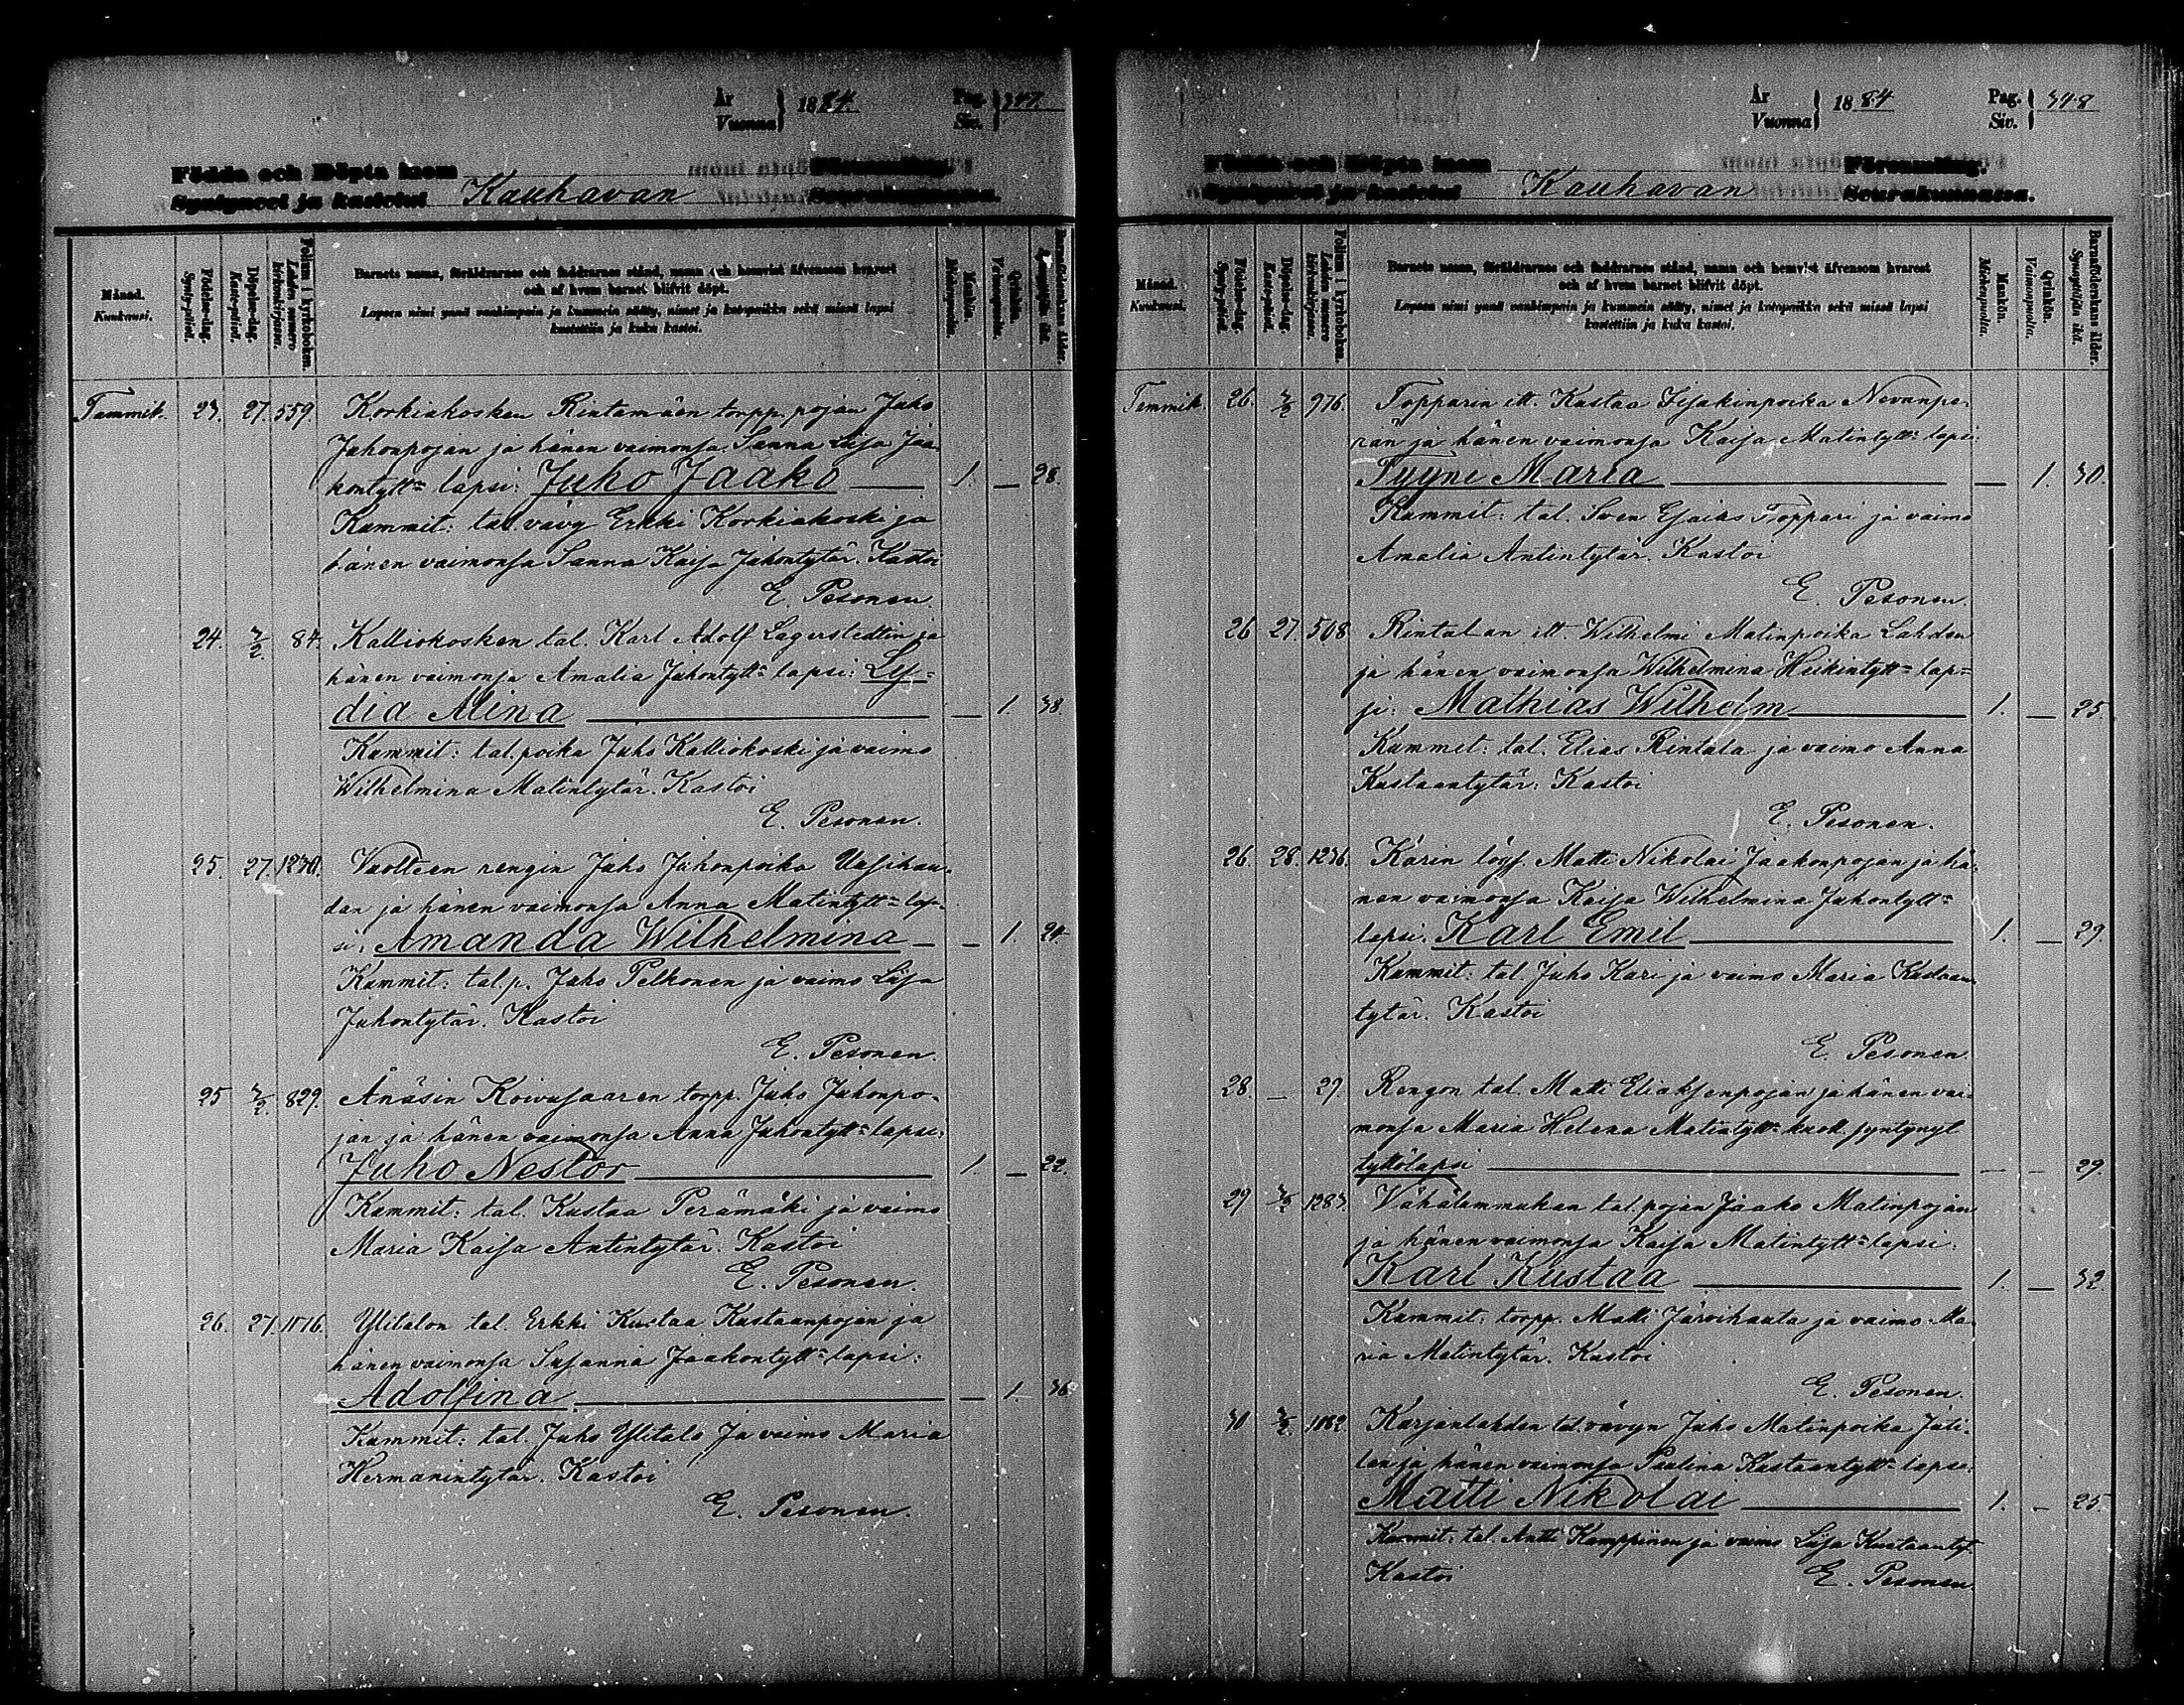 År
Vuonna
1884.
Pag.
Siv.
347.
Födda och Döpta inom
Församling.
Syntyneet ja kastetut
Kauhavan
Seurakunnassa.
Månad.
Kuukausi.
Födelse-dag.
Syntypäivä.
Döpelse-dag.
Kastepäivä.
Folium i kyrkoboken.
Lehden numero
kirkonkirjassa.
Barnets namn, föräldrarnes och faddrarnes stånd, namn och hemvist äfvensom hvarest
och af hvem barnet blifvit döpt.
Lapsen nimi ynnä vanhimpain ja kummein sääty, nimet ja kotopaikka sekä missä lapsi
kastettiin ja kuka kastoi.
Mankön.
Miehenpuolta.
Qvinkön.
Vaimonpuolta.
Barnaföderskans ålder.
Synnyttäjän ikä.
Tammik. 23. 27. 559. Korkiakosken Rintamäen torpp. pojan Juho
Juhonpojan ja hänen vaimonsa Sanna Liisa Jaa-
kontytt= lapsi: Juho Jaako 1. — 28.
Kummit: tal. vävy Erkki Korkiakoski ja
hänen vaimonsa Sanna Kaisa Juhontytär. Kastoi
E. Pesonen.
24. 3/2. 84. Kalliokosken tal. Karl Adolf Lagerstedtin ja
hänen vaimonsa Amalia Juhontytt= lapsi: Ly=
dia Alina — 1. 38.
Kummit: tal. poika Juho Kalliokoski ja vaimo
Wilhelmina Matintytär. Kastoi
E. Pesonen.
25. 27. 1230. Vuolteen rengin Juho Juhonpoika Uusihau-
dan ja hänen vaimonsa Anna Matintytt= lap-
si: Amanda Wilhelmina — 1. 24.
Kummit: tal. p. Juho Pelkonen ja vaimo Liisa
Juhontytär. Kastoi
E. Pesonen.
25 3/2. 829. Änäsin Koivusaaren torpp. Juho Juhonpo-
jan ja hänen vaimonsa Anna Juhontytt= lapsi:
Juho Nestor 1. — 22.
Kummit: tal. Kustaa Perämäki ja vaimo
Maria Kaisa Antintytär. Kastoi
E. Pesonen.
26. 27. 1116. Ylitalon tal. Erkki Kustaa Kustaanpojan ja
hänen vaimonsa Susanna Jaakontytt= lapsi:
Adolfina — 1. 36.
Kummit: tal. Juho Ylitalo ja vaimo Maria
Hermanintytär. Kastoi
E. Pesonen.
År
Vuonna
1884
Pag.
Siv.
348
Födda och Döpta inom
Församling.
Syntyneet ja kastetut
Kauhavan
Seurakunnassa.
Månad.
Kuukausi.
Födelse-dag.
Syntypäivä.
Döpelse-dag.
Kastepäivä.
Folium i kyrkoboken.
Lehden numero
kirkonkirjassa.
Barnets namn, föräldrarnes och faddrarnes stånd, namn och hemvist äfvensom hvarest
och af hvem barnet blifvit döpt.
Lapsen nimi ynnä vanhimpain ja kummein sääty, nimet ja kotopaikka sekä missä lapsi
kastettiin ja kuka kastoi.
Mankön.
Miehenpuolta.
Qvinkön.
Vaimonpuolta.
Barnaföderskans ålder.
Synnyttäjän ikä.
Tammik. 26. 3/2 976. Topparin itt. Kustaa Iisakinpoika Nevanpe-
rän ja hänen vaimonsa Kaisa Matintytt= lapsi:
Tyyne Maria — 1. 30.
Kummit: tal. Sven Esaias Toppari ja vaimo
Amalia Antintytär. Kastoi
E. Pesonen.
26 27. 508 Rintalan itt. Wilhelmi Matinpoika Lahden
ja hänen vaimonsa Wilhelmina Heikintytt= lap=
si: Mathias Wilhelm 1. — 25.
Kummit: tal. Elias Rintala ja vaimo Anna
Kustaantytär: Kastoi
E. Pesonen.
26. 28. 1236. Karin löys. Matti Nikolai Jaakonpojan ja hä-
nen vaimonsa Kaisa Wilhelmina Juhontytt=
lapsi. Karl Emil 1. — 29.
Kummit: tal. Juho Kari ja vaimo Maria Kustaan-
tytär. Kastoi
E. Pesonen.
28. — 29. Rengon tal. Matti Eliaksenpojan ja hänen vai-
monsa Maria Helena Matintytt= kuoll. syntynyt
tyttölapsi — — 29.
29 3/2 1283. Vähälammukan tal. pojan Jaako Matinpojan
ja hänen vaimonsa Kaisa Matintytt= lapsi:
Karl Kustaa 1. — 32.
Kummit: torpp. Matti Järvihauta ja vaimo Ma-
ria Matintytär. Kastoi
E. Pesonen.
30 3/2. 1182. Karjanlahden tal. vävyn Juho Matinpoika
ja hänen vaimonsa Paulina Kustaantytt= lapsi:
Matti Nikolai 1. — 25.
Kummit: tal. Antti Kamppinen ja vaimo Liisa Kustaantyt.
Kastoi E. Pesonen.